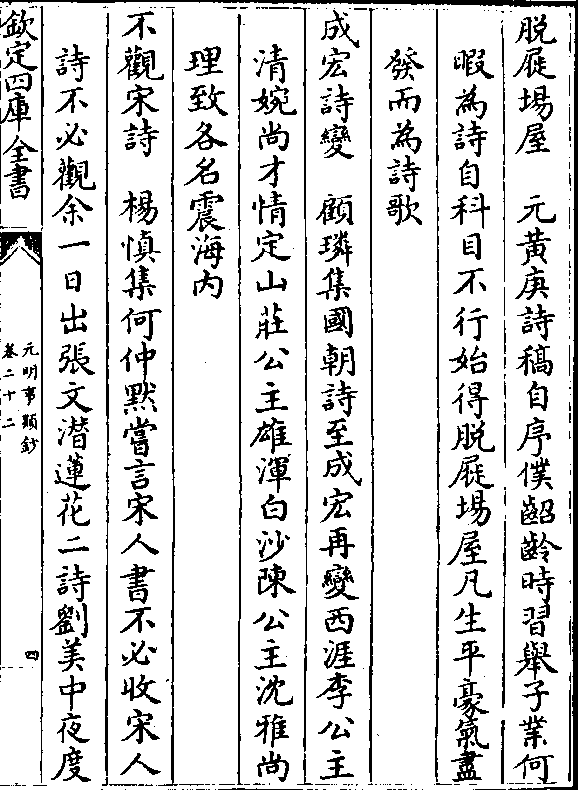 脱屣場屋　元黄庚詩稿自序僕齠齡時習舉子業何
暇為詩自科目不行始得脱屣場屋凡生平豪氣盡
發而為詩歌
成宏詩變　顧璘集國朝詩至成宏再變西涯李公主
清婉尚才情定山莊公主雄渾白沙陳公主沈雅尚
理致各名震海内
不觀宋詩　楊慎集何仲黙嘗言宋人書不必收宋人
詩不必觀余一日出張文潛蓮花二詩劉美中夜度
欽定四庫全書
元明事類鈔
卷二十二
四